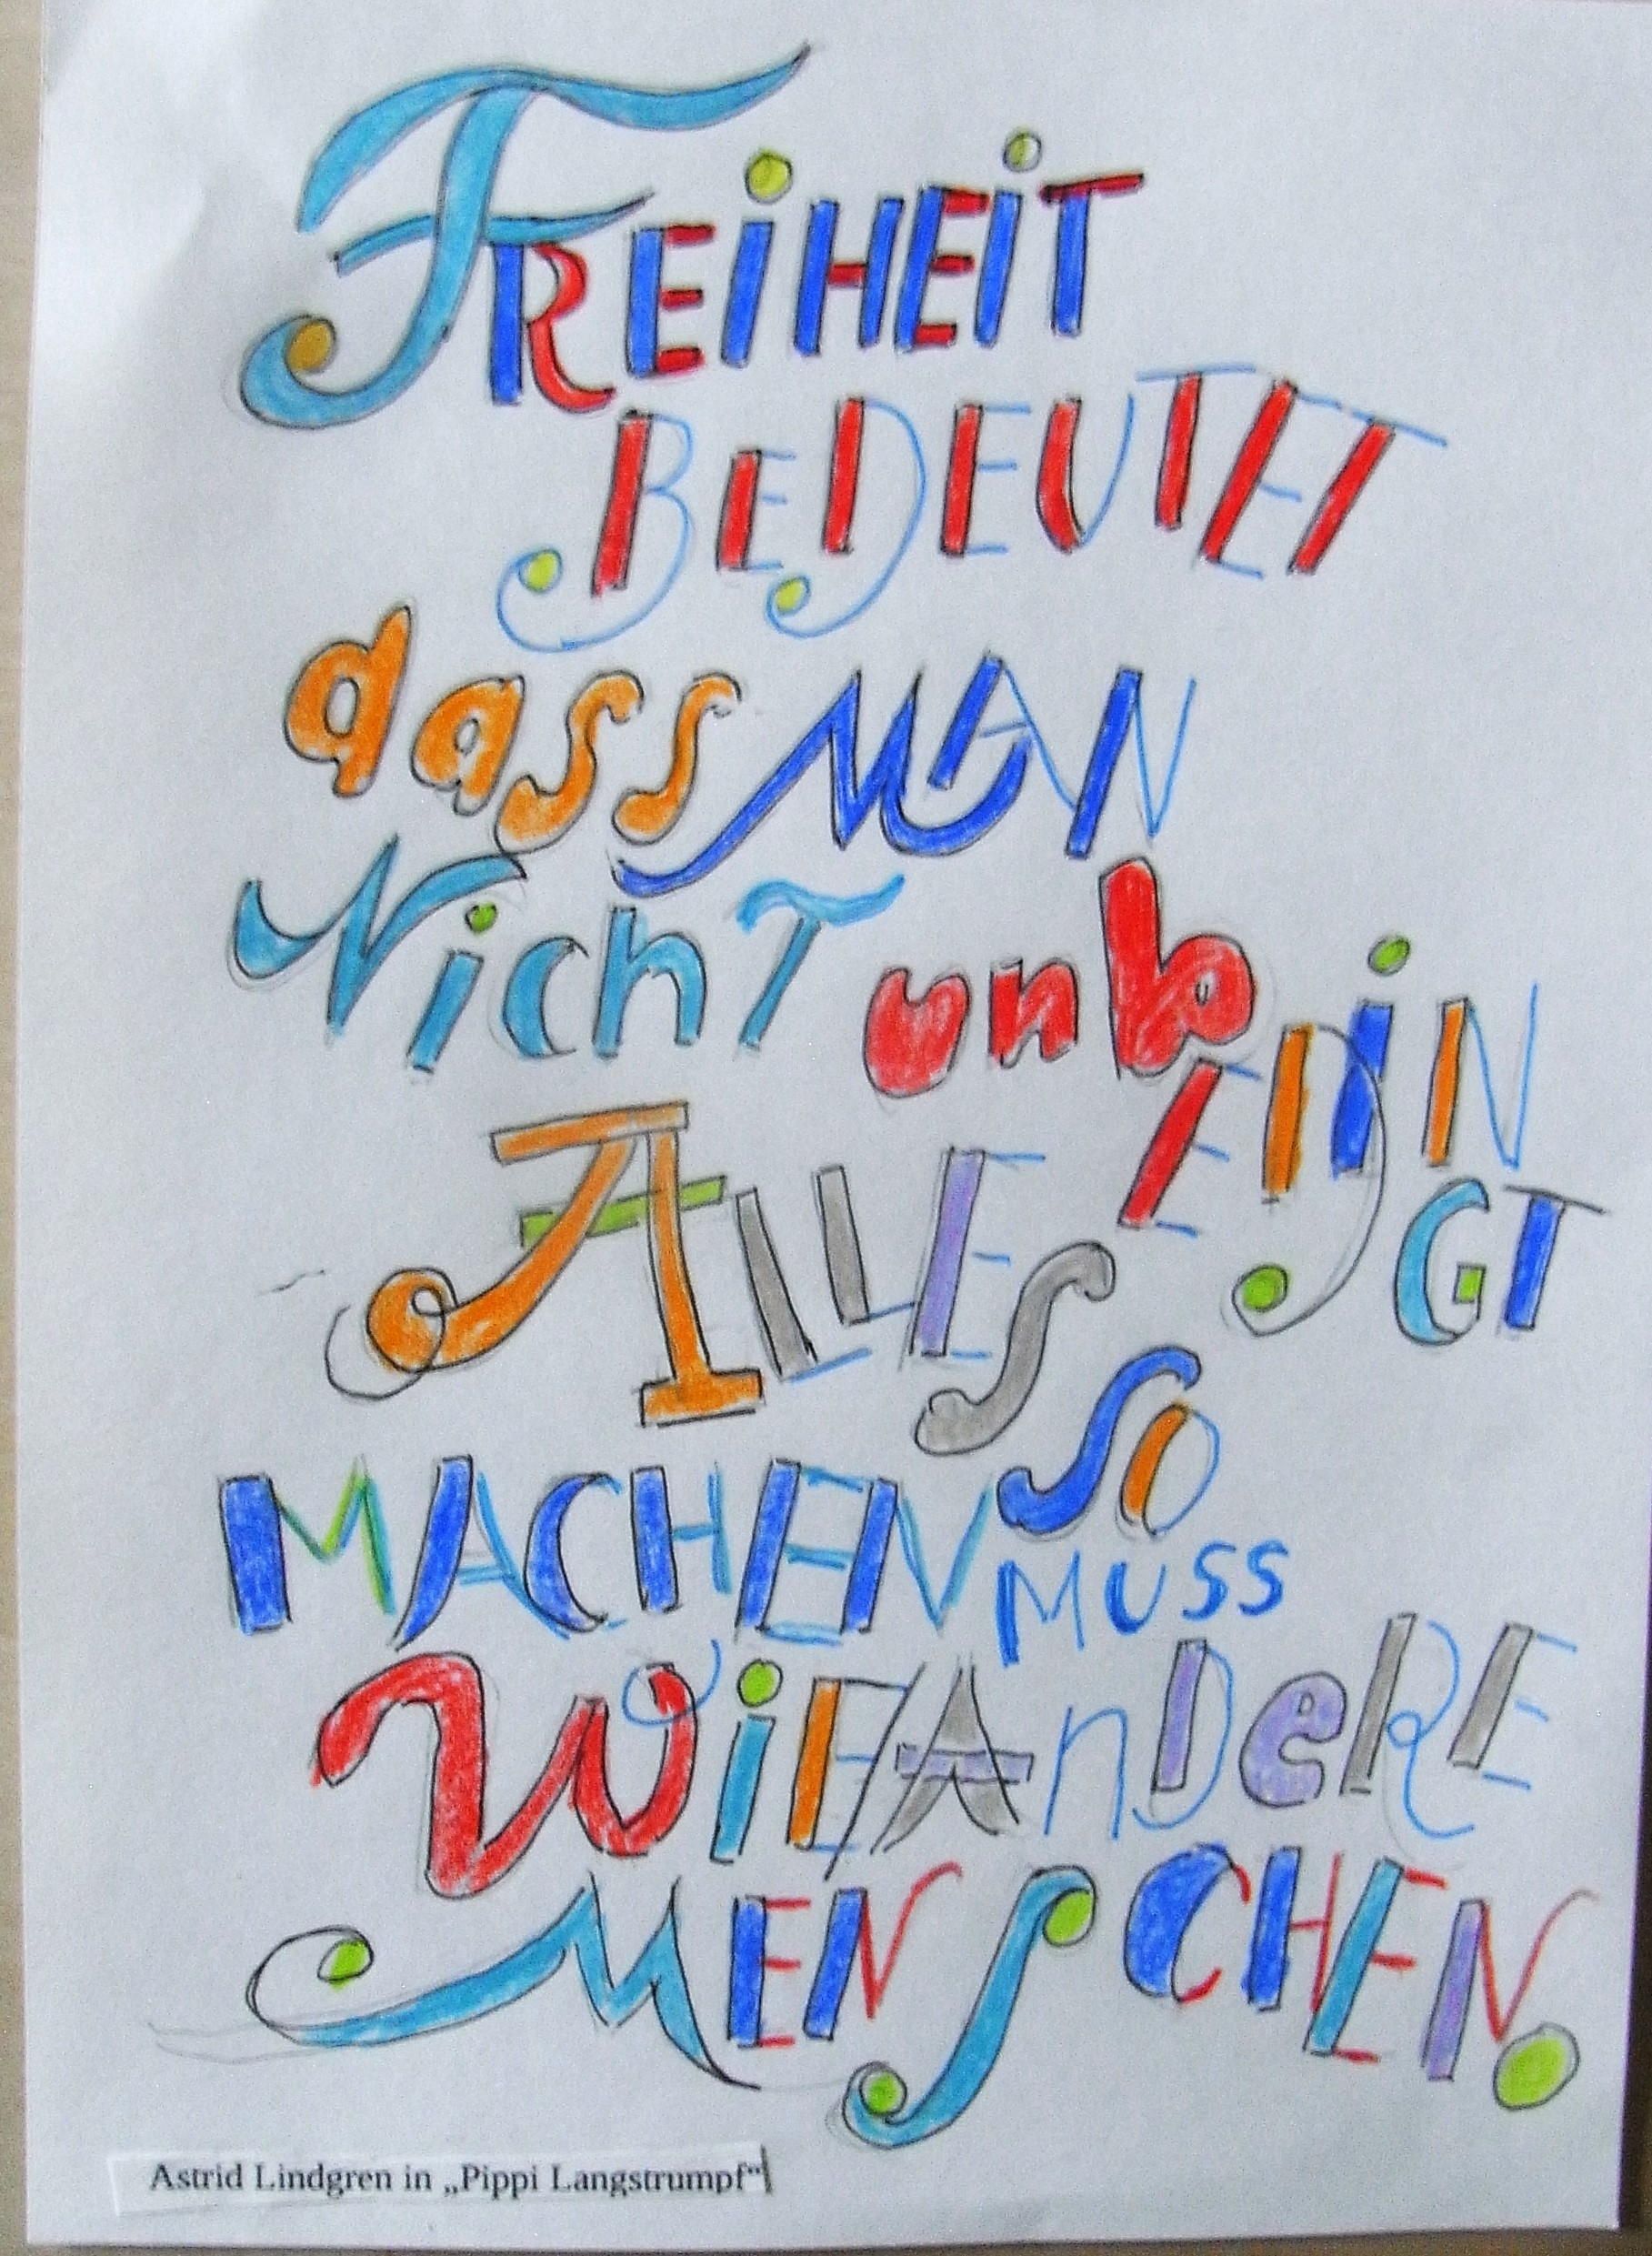 FREiHEiT
BEDEUTET
dass MAN
NichT unbEDiNGT
ALLES
MACHEN SO MUSS
WiE AnDeRE
MENSCHEN.
Astrid Lindgren in „Pippi Langstrumpf“